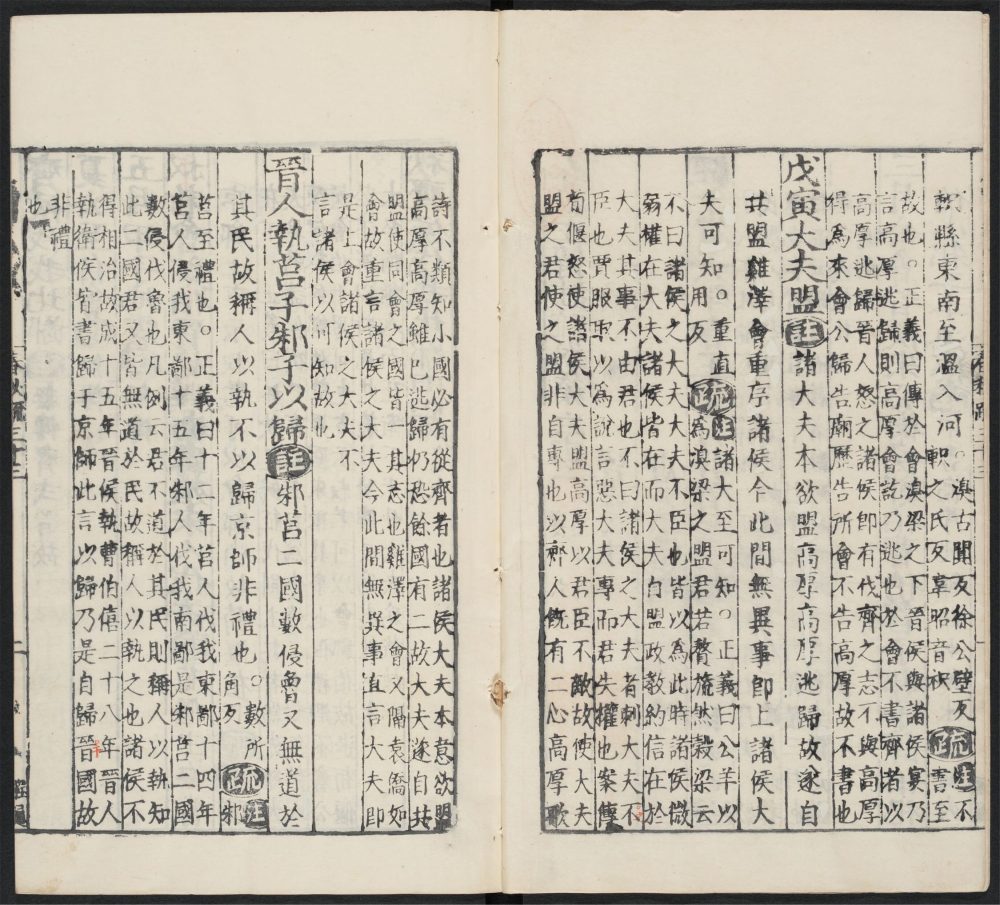 軹縣東南至溫入河
○湨古閴反徐公壁反
軹之氏反韋昭音枳
疏
註
不
書至
故也○正義曰傳於會湨梁之下晉侯與諸侯宴乃
言高厚逃歸則高厚會訖乃逃也於會不書齊者以
高厚逃歸晉人怒之諸侯即有伐齊之志不與高厚
得為來會公歸告廟歷告所會不告高厚故不書也
戊寅大夫盟註諸大夫本欲盟高厚高厚逃歸故遂自
共盟雞澤會重序諸侯今此間無異事即上諸侯大
夫可知
○重直
用反
疏
註諸大至可知○正義曰公羊以
為湨梁之盟君若贅旒然穀梁云
不曰諸侯之大夫大夫不臣也皆以為此時諸侯微
弱權在大夫諸侯皆在而大夫自盟政教約信在於
大夫其事不由君也不曰諸侯之大夫者刺大夫不
臣也賈服取以為說言惡大夫專而君失權也案傳
荀偃怒使諸侯大夫盟高厚以君臣不敵故使大夫
盟之君使之盟非自專也以齊人既有二心高厚歌
詩不類知小國必有從齊者也諸侯大夫本意欲盟
高厚高厚雖已逃歸仍恐餘國有二故大夫遂自共
盟使同會之國皆一其志也雞澤之會又隔袁僑如
會故重言諸侯之大夫今此間無異事直言大夫即
是上會諸侯之大夫不
言諸侯以可知故也
晉人執莒子邾子以歸註邾莒二國數侵魯又無道於
其民故稱人以執不以歸京師非禮也
○數所
角反
疏
註
邾
莒至禮也○正義曰十二年莒人伐我東鄙十四年
莒人侵我東鄙十五年邾人伐我南鄙是邾莒二國
數侵伐魯也凡例云君不道於其民則稱人以執知
此二國君又皆無道於民故稱人以執之也諸侯不
得相治故成十五年晉侯執曹伯僖二十八年晉人
執衛侯皆書歸于京師此言以歸乃是自歸晉國故
非禮
也